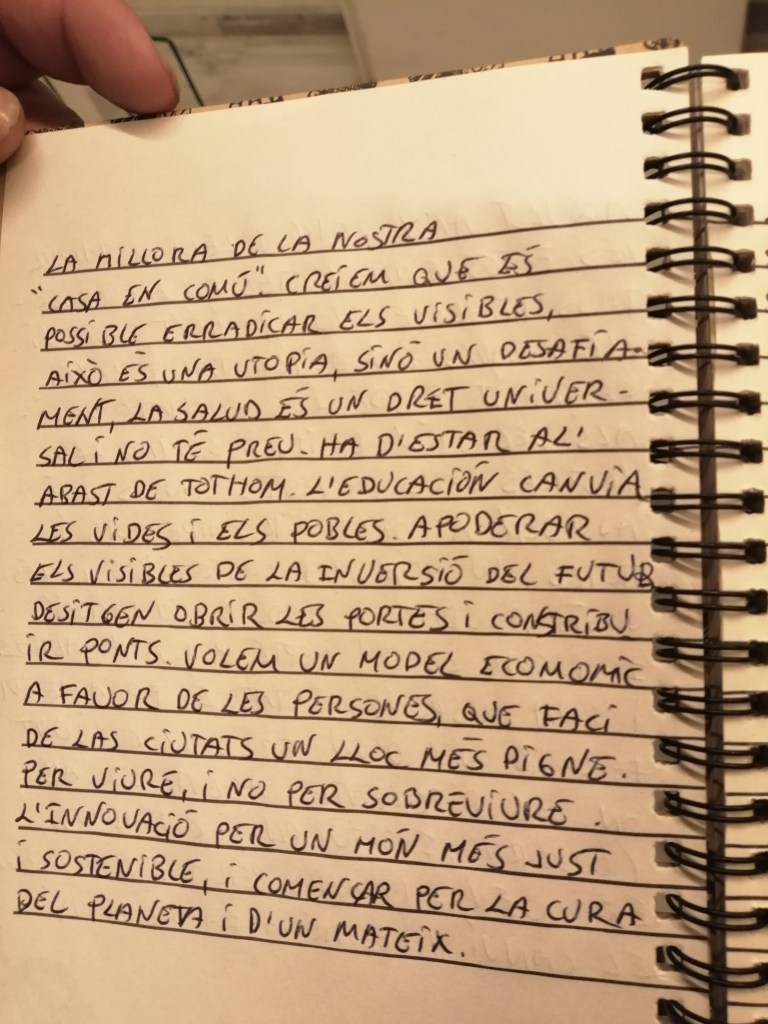 LA MILLORA DE LA NOSTRA
"CASA EN COMÚ". CREIEM QUE ÉS
POSSIBLE ERRADICAR ELS VISIBLES,
AIXÒ ÉS UNA UTOPIA, SINÓ UN DESAFIA-
MENT, LA SALUD ÉS UN DRET UNIVER-
SAL I NO TÉ PREU. HA D'ESTAR AL'
ABAST DE TOTHOM. L'EDUCACIÓN CANVIA
LES VIDES I ELS POBLES. APODERAR
ELS VISIBLES DE LA INVERSIÓ DEL FUTUR
DESITGEN OBRIR LES PORTES I CONSTRIBU
IR PONTS. VOLEM UN MODEL ECONOMIC
A FAVOR DE LES PERSONES, QUE FACI
DE LAS CIUTATS UN LLOC MÉS DIGNE.
PER VIURE, I NO PER SOBREVIURE.
L'INNOVACIÓ PER UN MÓN MÉS JUST
I SOSTENIBLE, I COMENÇAR PER LA CURA
DEL PLANETA I D'UN MATEIX.